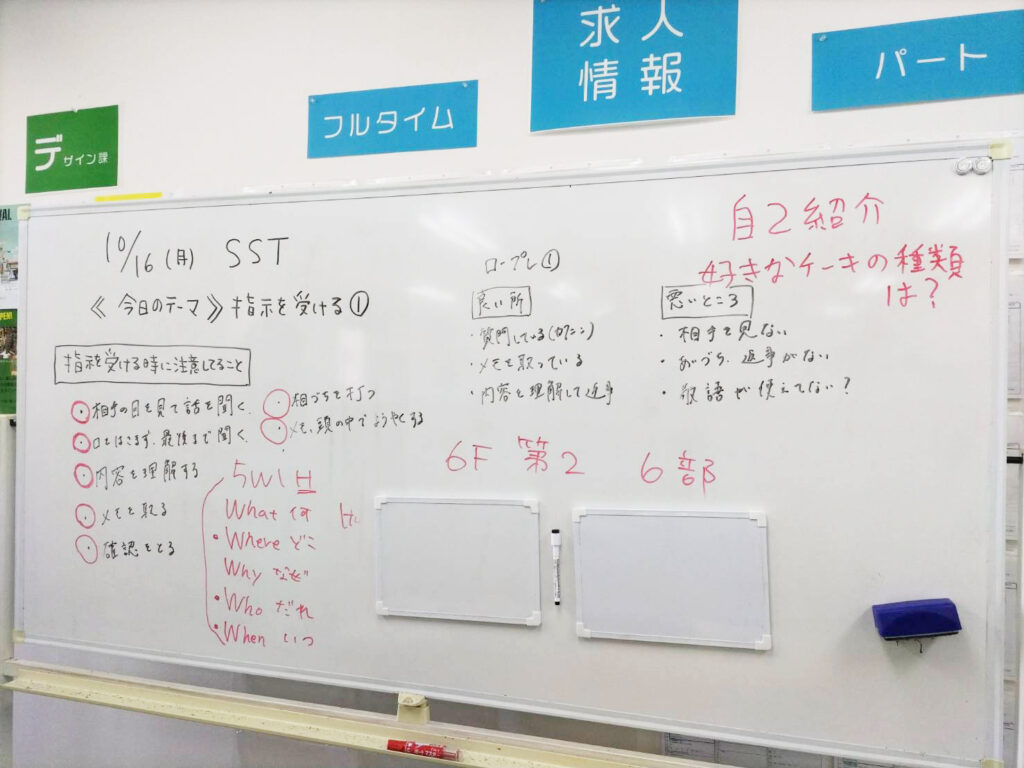 求人
情報
パート
フルタイム
デザイン課
10/16(月) SST
《今日のテーマ》指示を受ける①
指示を受ける時に注意してること
・相手の目を見て話を聞く.
・口をはさまず、最後まで聞く.
・内容を理解する
・メモを取る
・確認をとる
・相づちを打つ
・メモ、頭の中でようやくする
5W1H
What 何
・Where どこ
Why なぜ
・Who だれ
・When いつ
ロープレ①
良い所
・質問している
・メモを取っている
・内容を理解して返事
悪いところ
・相手を見ない
・あいづち、返事がない
・敬語が使えてない?
自己紹介
好きなケーキの種類
は?
6F 第2 6部